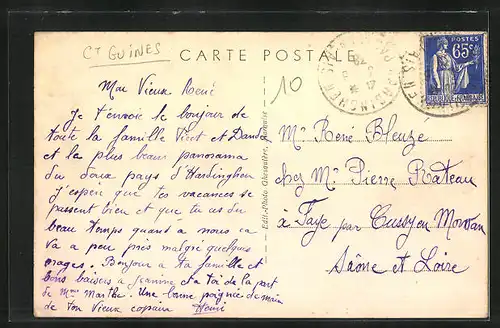 CT GUINES
CARTE POSTALE
10
POSTES
65c
Mon Vieux René
Je t'envoie le bonjour de
toute la famille et
et la plus beau panorama
du doux pays d'Hardinghen
J'espère que tes vacances se
passent bien et que tu as du
beau temps quand a nous ca
va a peu près malgré quelques
orages. Bonjour a ta famille et
bons baisers a Jeanne et a toi de la part
de Mme Marthe. Une bonne poignée de main
de ton Vieux copain Henri
Edit.-Photo
Mr René Bleuze
chez Mr Pierre Rateau
à Faye par Cussy en Morvan
Saône et Loire